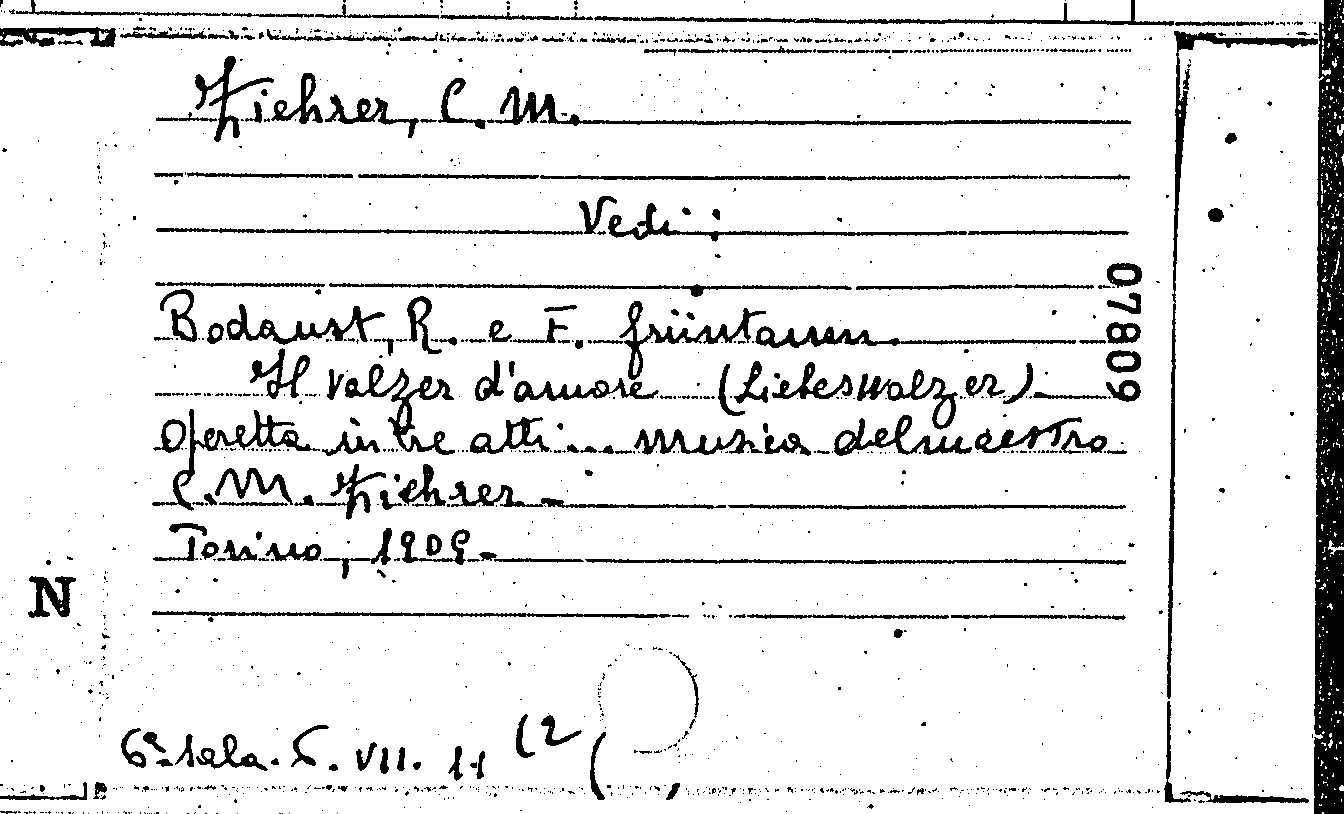 Ziehrer, C. M.
Vedi:
Bodanst, R. e F. Grüntanm.
Il valzer d'amore (Liebeswalzer).
Operetta in tre atti... musica del maestro
C. M. Ziehrer -
Torino, 1909-
07809
N
6ª sala. 5. VII. 11 (2